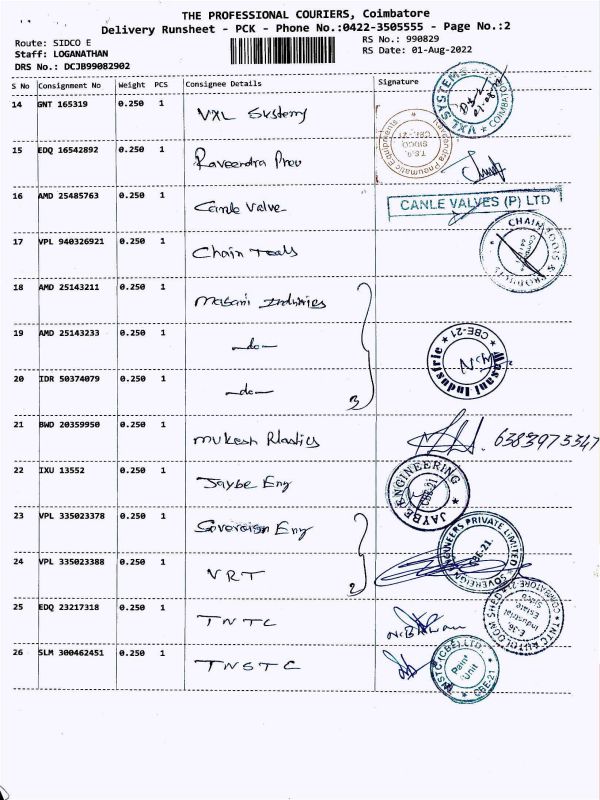 THE PROFESSIONAL COURIERS, Coimbatore
Delivery Runsheet - PCK - Phone No.:0422-3505555 - Page No.:2
Route: SIDCO E
RS No.: 990829
Staff: LOGANATHAN
RS Date: 01-Aug-2022
DRS No.: DCJB99082902
S No Consignment No Weight PCS Consignee Details Signature
14 GNT 165319 0.250 1 VXL Systems
VXL SYSTEMS * COIMBATORE
15 EDQ 16542892 0.250 1 Raveendra Pneu
Raveendra Pneumatic Equipments
SIDCO,
CBE-21
16 AMD 25485763 0.250 1 Canle Valve
CANLE VALVES (P) LTD
17 VPL 940326921 0.250 1 Chain Tools
CHAIN TOOLS & PRODUCTS
18 AMD 25143211 0.250 1 Masani Industries
19 AMD 25143233 0.250 1 -do-
Masani Industrie * CBE-21 *
20 IDR 50374079 0.250 1 -do-
3
21 BWD 20359950 0.250 1 Mukesh Plastics
6383973347
22 IXU 13552 0.250 1 Jaybe Eng
JAYBE ENGINEERING *
CBE-21
23 VPL 335023378 0.250 1 Sovereign Eng
SOVEREIGN ENGINEERS PRIVATE LIMITED
CBE-21
24 VPL 335023388 0.250 1 VRT
2
25 EDQ 23217318 0.250 1 TNTC
E-36,
Sidco
Industrial
Estate
COIMBATORE-21
26 SLM 300462451 0.250 1 TNSTC
TNSTC (CBE) LTD.
Paint
Unit
CBE-21